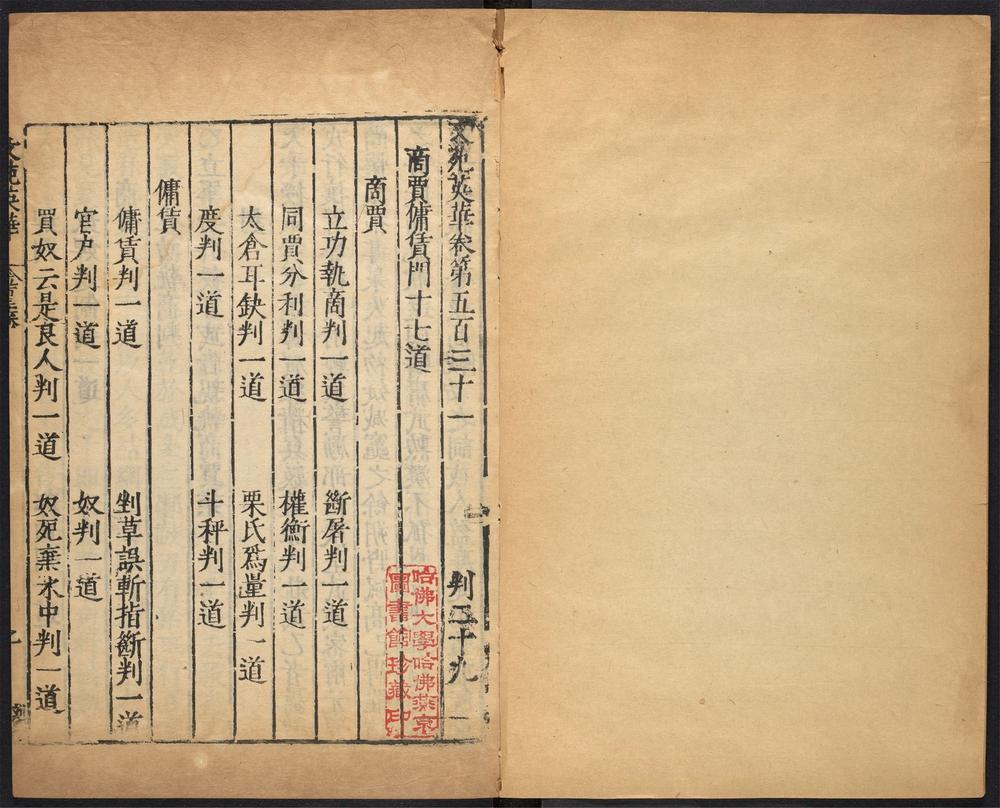 文苑英華卷第五百三十一 判二十九
商賈傭賃門十七道
商賈
立功執商判一道 斷屠判一道
同賈分利判一道 權衡判一道
太倉耳鈌判一道 栗氏爲量判一道
度判一道 斗秤判一道
傭賃
傭賃判一道 剉草誤斬指斷判一道
官户判一道 奴判一道
買奴云是良人判一道 奴死棄水中判一道
文苑英華
哈佛大學哈佛燕京
圖書館珍藏印